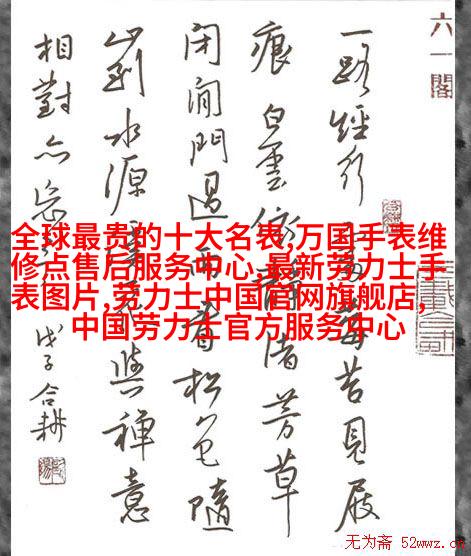 六一閣
一路經行 莓苔見屐
痕白雲依靜渚芳草
閉閒門過雨看松色隨
山到水源 與禪意
相對亦忘
戊子合耕
全球最贵的十大名表,万国手表维
修点售后服务中心,最新劳力士手
表图片,劳力士中国官网旗舰店,
中国劳力士官方服务中心
无为斋 52wwz.c